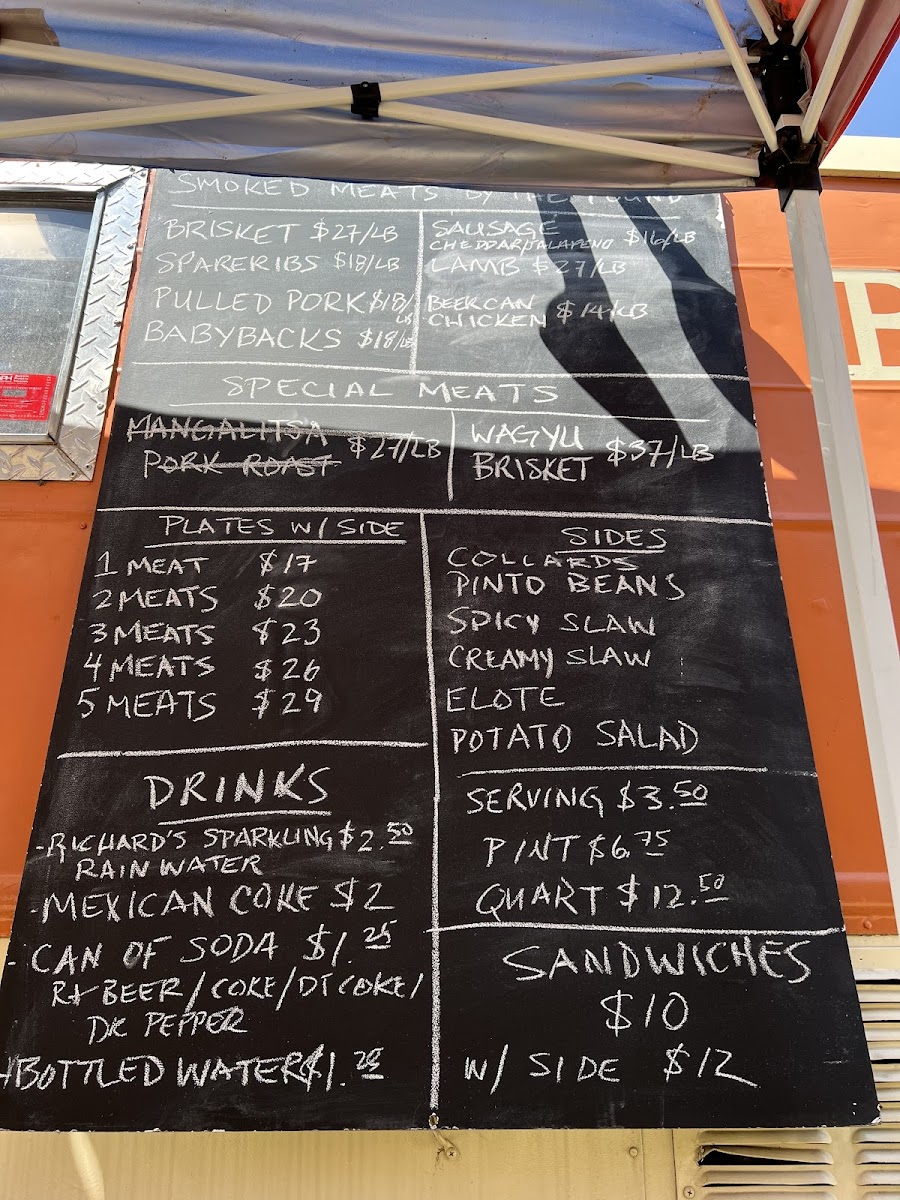 SMOKED MEATS BY THE POUND
BRISKET $27/LB
SPARERIBS $18/LB
PULLED PORK $18/LB
BABYBACKS $18/LB
SAUSAGE
CHEDDAR/JALAPENO $16/LB
LAMB $27/LB
BEERCAN
CHICKEN $14/LB
SPECIAL MEATS
MANGALITSA
PORK ROAST $27/LB
WAGYU
BRISKET $37/LB
PLATES W/ SIDE
1 MEAT $17
2 MEATS $20
3 MEATS $23
4 MEATS $26
5 MEATS $29
SIDES
COLLARDS
PINTO BEANS
SPICY SLAW
CREAMY SLAW
ELOTE
POTATO SALAD
SERVING $3.50
PINT $6.75
QUART $12.50
DRINKS
-RICHARD'S SPARKLING $2.50
RAIN WATER
-MEXICAN COKE $2
-CAN OF SODA $1.25
RT BEER/COKE/DT COKE/
DR PEPPER
BOTTLED WATER $1.25
SANDWICHES
$10
W/ SIDE $12